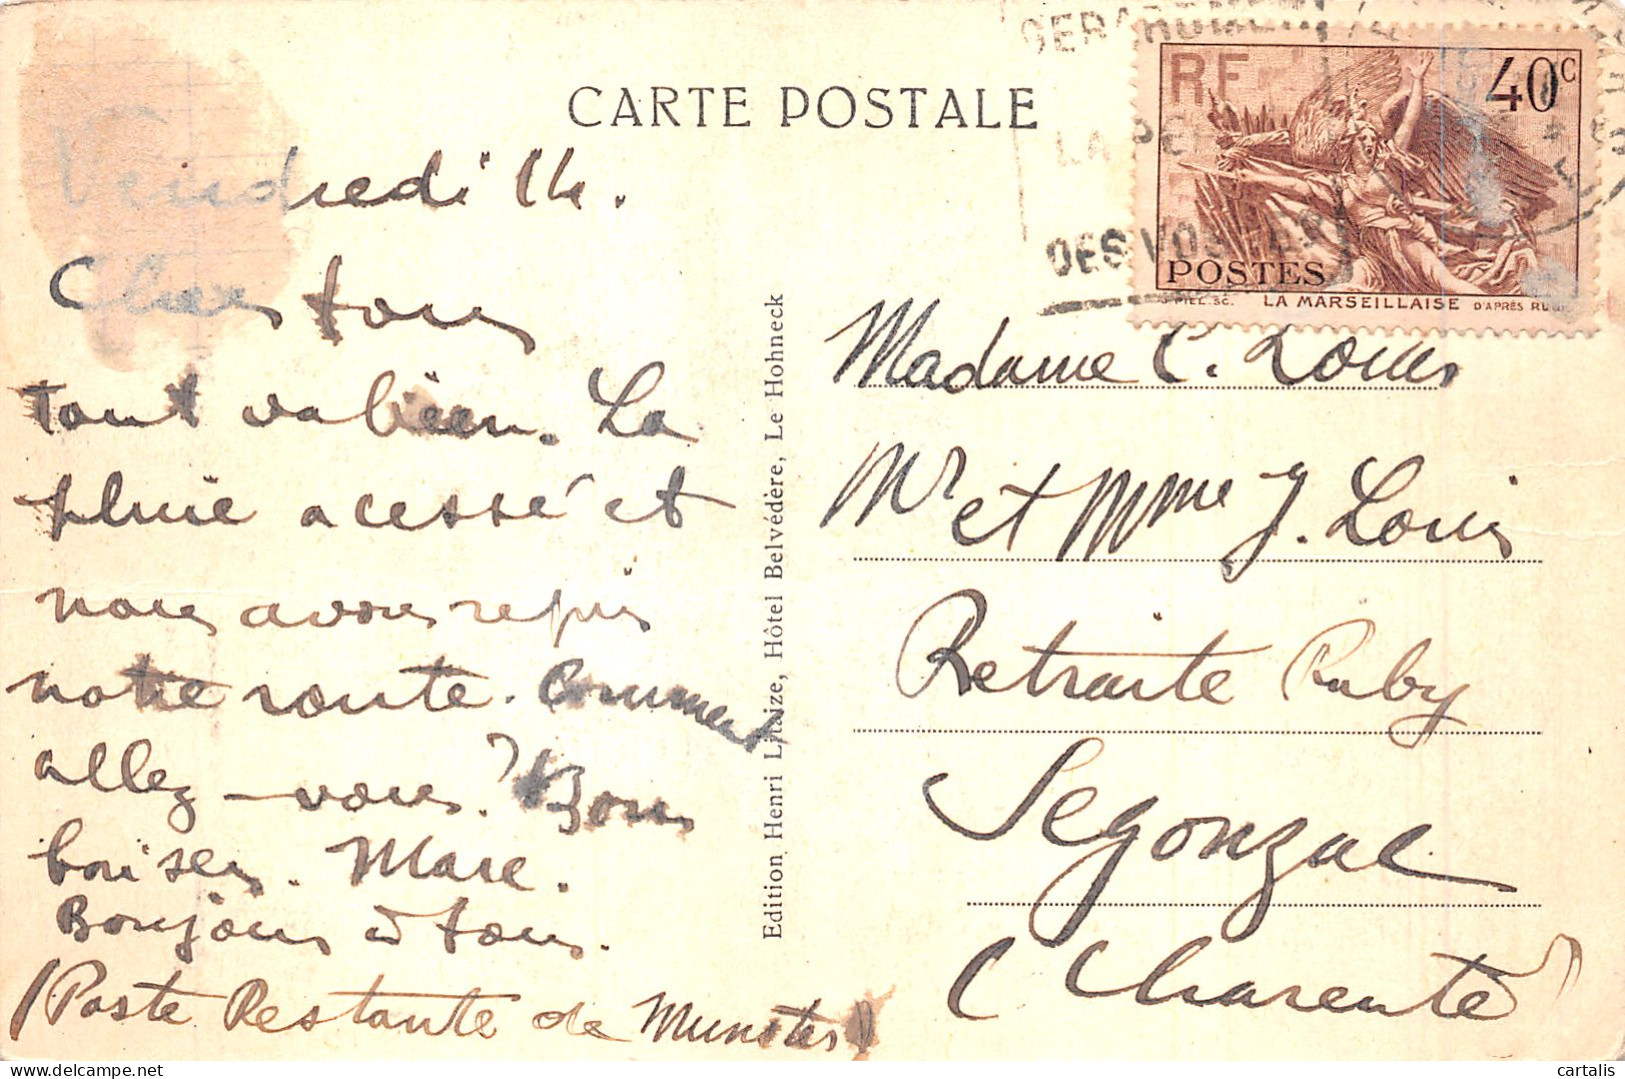 CARTE POSTALE
Vendredi 14.
Chers tous
tout va bien. La
pluie a cessé et
nous avons repris
notre route. Comment
allez-vous? Bons
baisers. Marc.
Bonjour à tous.
(Poste Restante de Munster)
Edition Henri Litaize, Hôtel Belvédère, Le Hohneck
GERARDMER
LA PER
DES VOSGES
RF
40c
POSTES
PIEL.SC. LA MARSEILLAISE D'APRÈS RUDE
Madame C. Louis
Mr et Mme J. Louis
Retraite Ruby
Segonzac
(Charente)
cartalis
delcampe.net